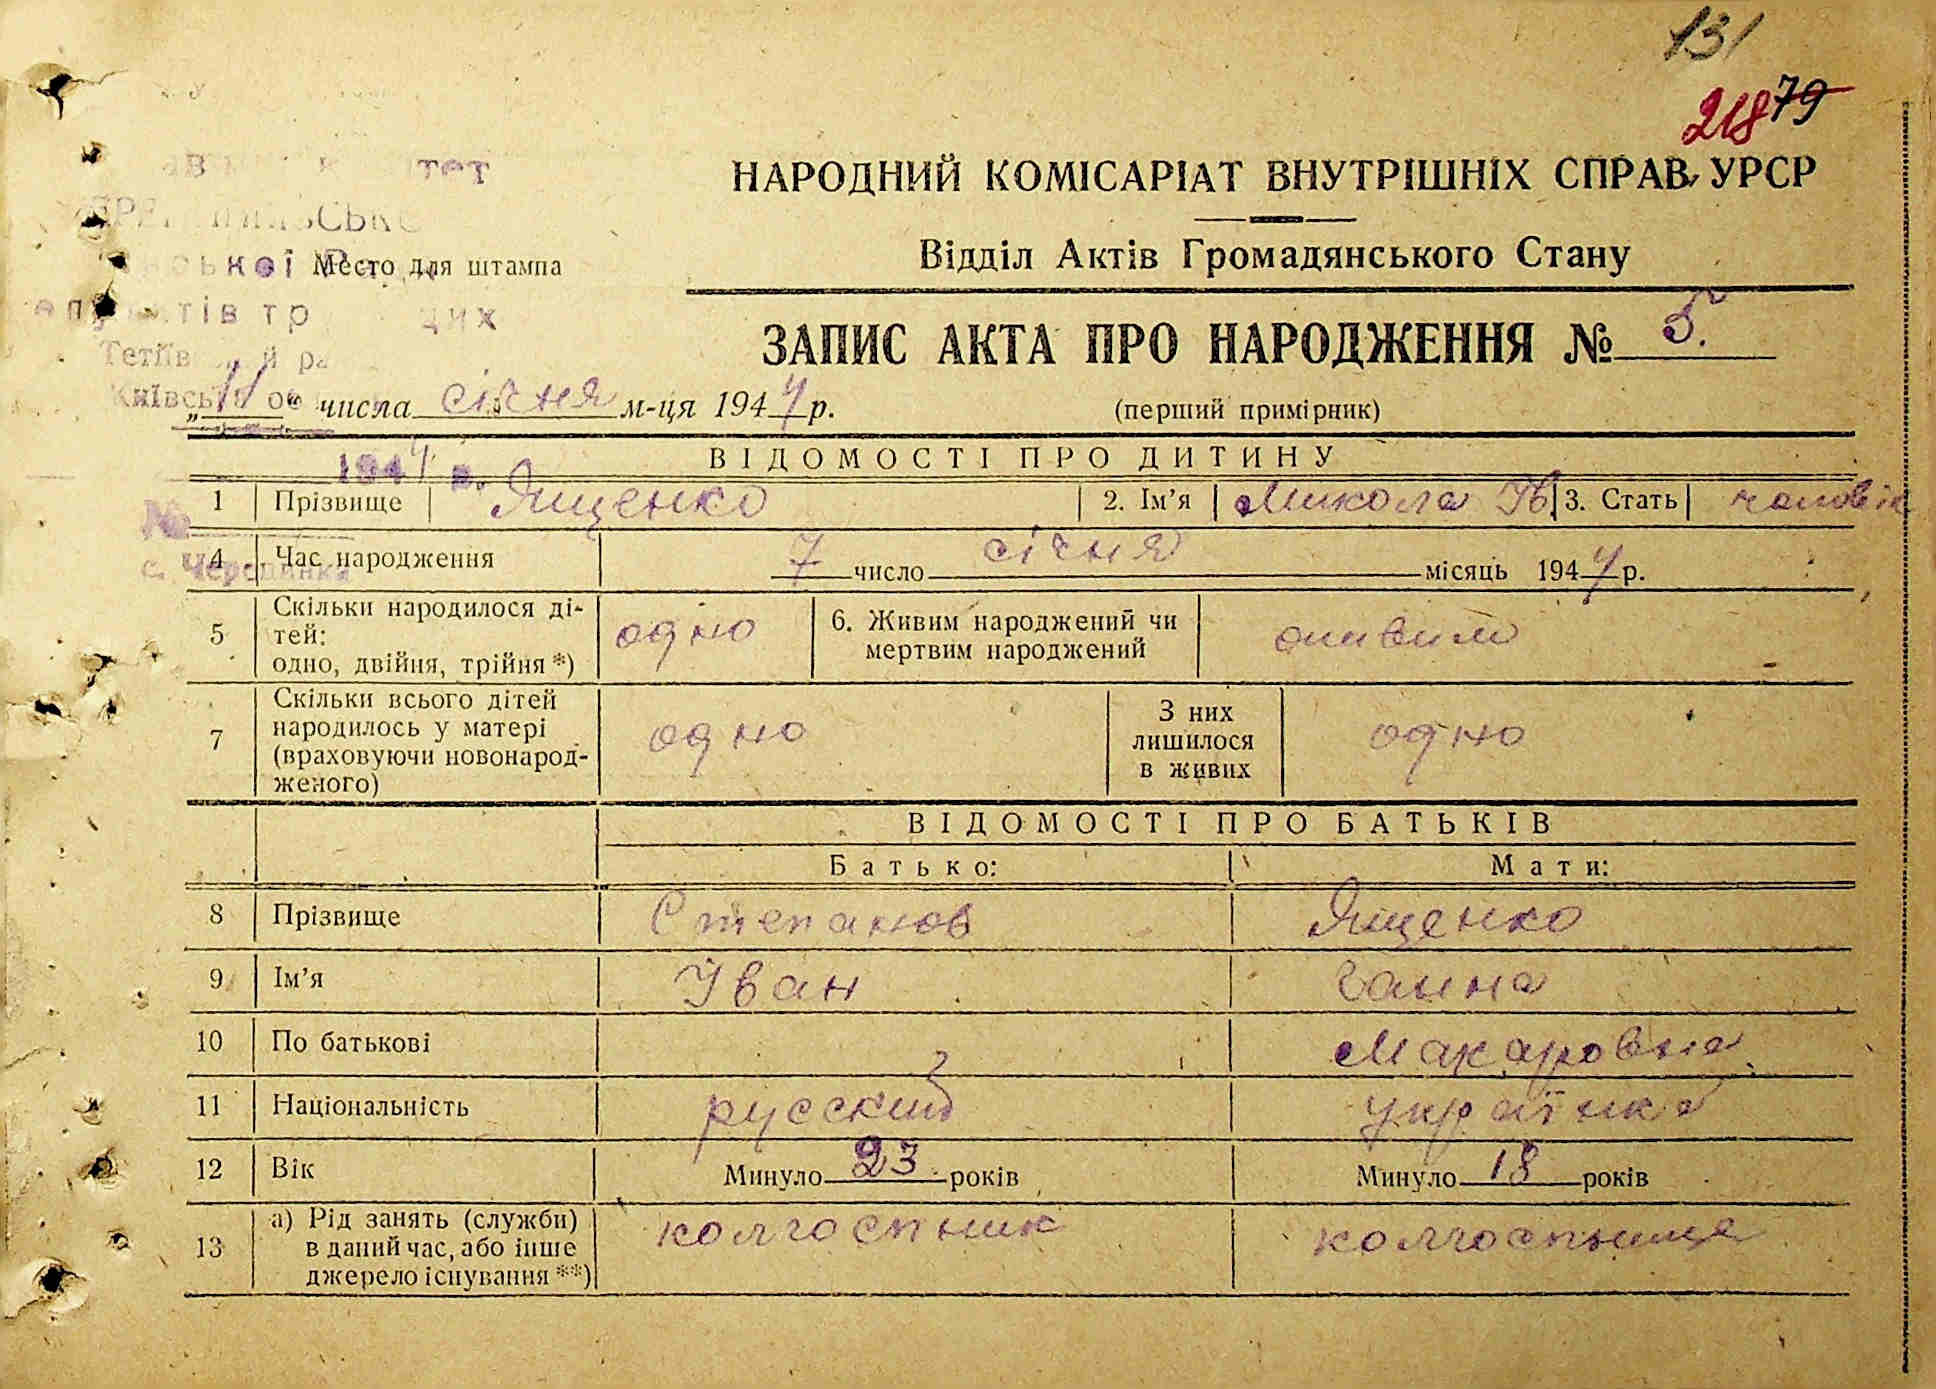 131
218 79
НАРОДНИЙ КОМІСАРІАТ ВНУТРІШНІХ СПРАВ УРСР
Відділ Актів Громадянського Стану
Место для штампа
ЗАПИС АКТА ПРО НАРОДЖЕННЯ № 5.
„11" числа січня м-ця 1944 р.
(перший примірник)
1944 р.
№
с. Черединка
ВІДОМОСТІ ПРО ДИТИНУ
1 Прізвище Ященко 2. Ім’я Микола Ів. 3. Стать чоловік
4 Час народження 7 число січня місяць 1944 р.
5 Скільки народилося ді-
тей:
одно, двійня, трійня *) одно
6. Живим народжений чи
мертвим народжений живим
7 Скільки всього дітей
народилось у матері
(враховуючи новонарод-
женого) одно
З них
лишилося
в живих одно
ВІДОМОСТІ ПРО БАТЬКІВ
Батько: Мати:
8 Прізвище Степанов Ященко
9 Ім’я Іван Ганна
10 По батькові Макаровна
11 Національність русский українка
12 Вік Минуло 23 років Минуло 18 років
13 а) Рід занять (служби)
в даний час, або інше
джерело існування **) колгоспник колгоспниця